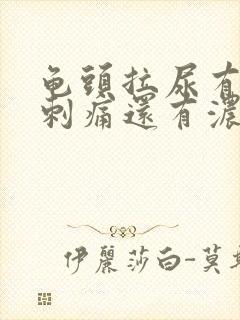 龟頭拉尿有
刺痛還有濃
伊麗莎白-莫